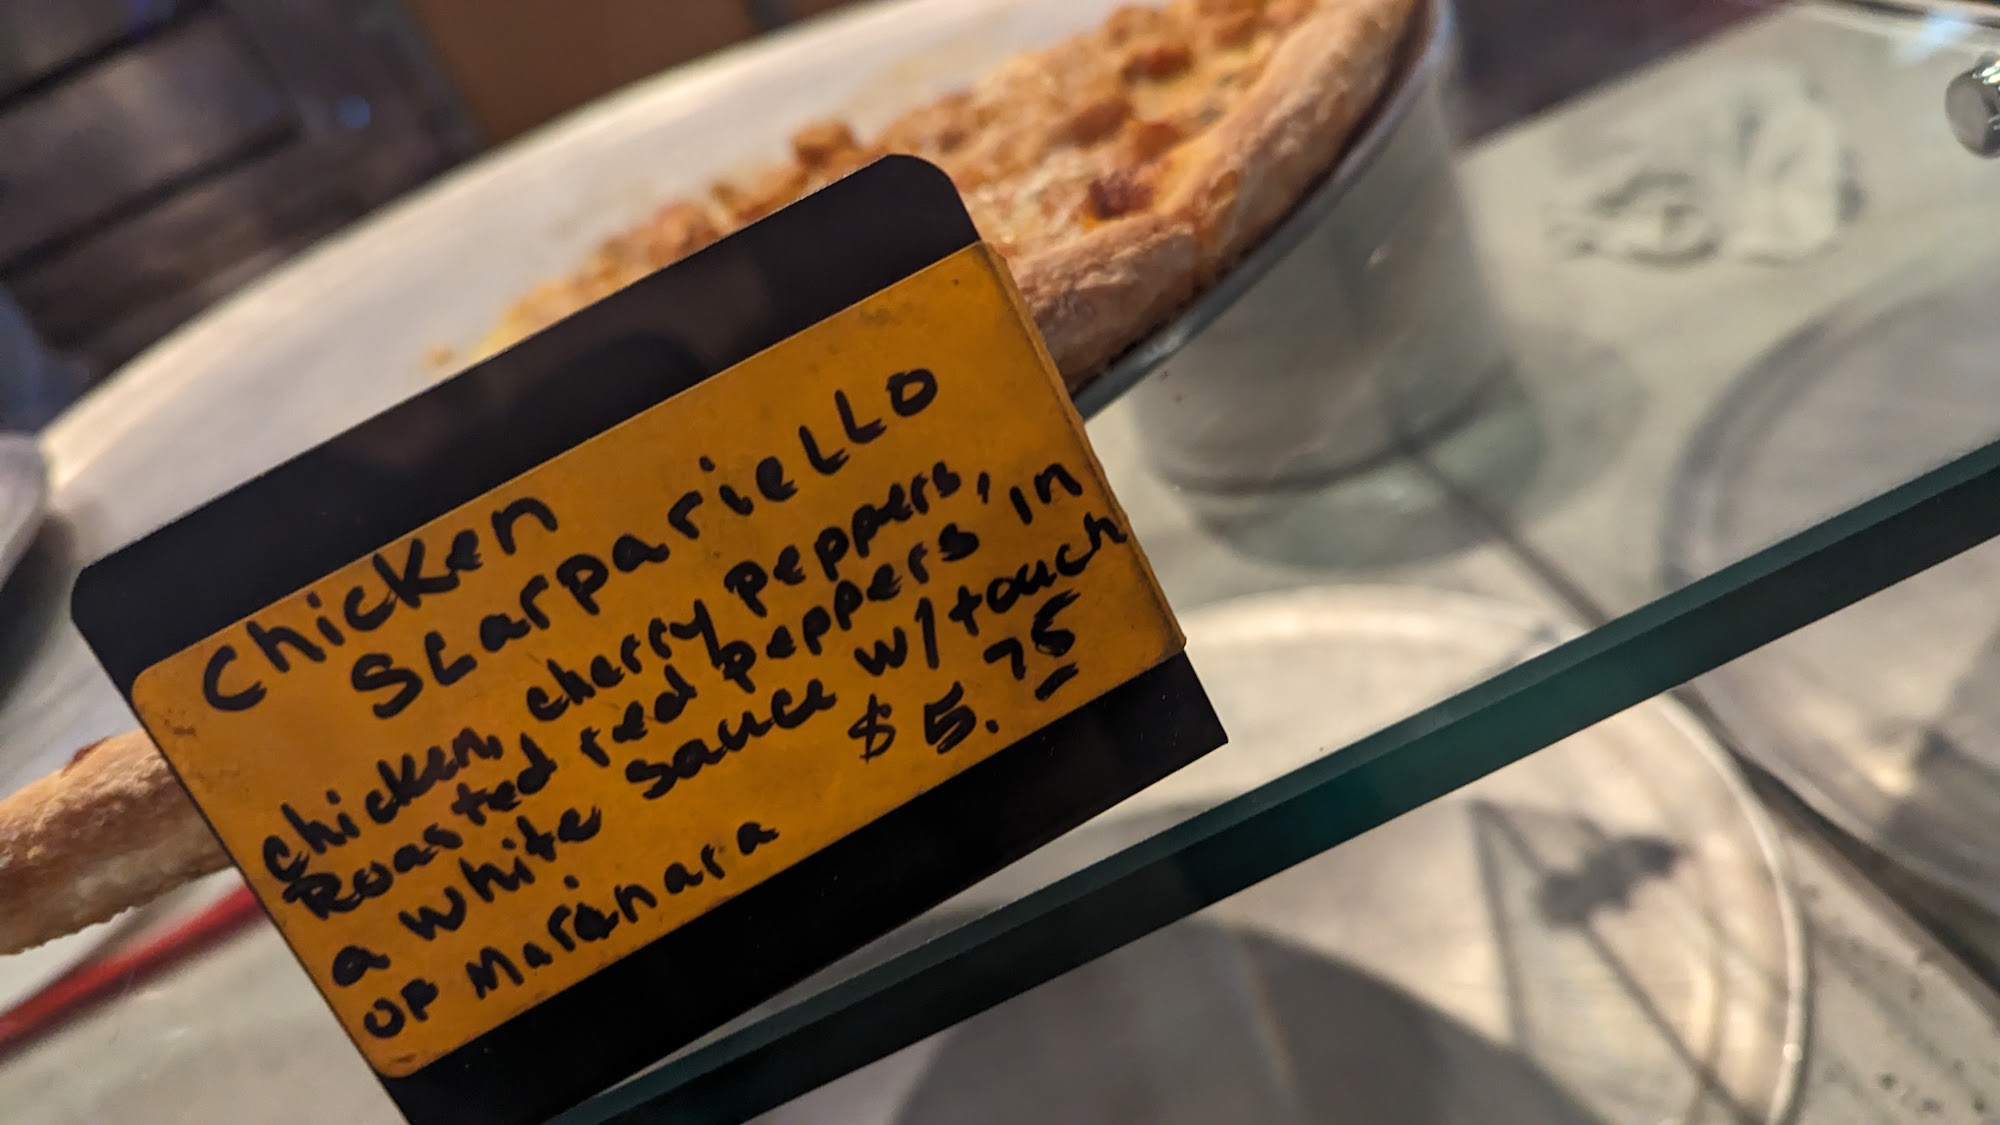 Chicken
SCarparieLLO
chicken, cherry peppers,
Roasted red peppers in
a white sauce w/touch
OF Marinara
$5.75